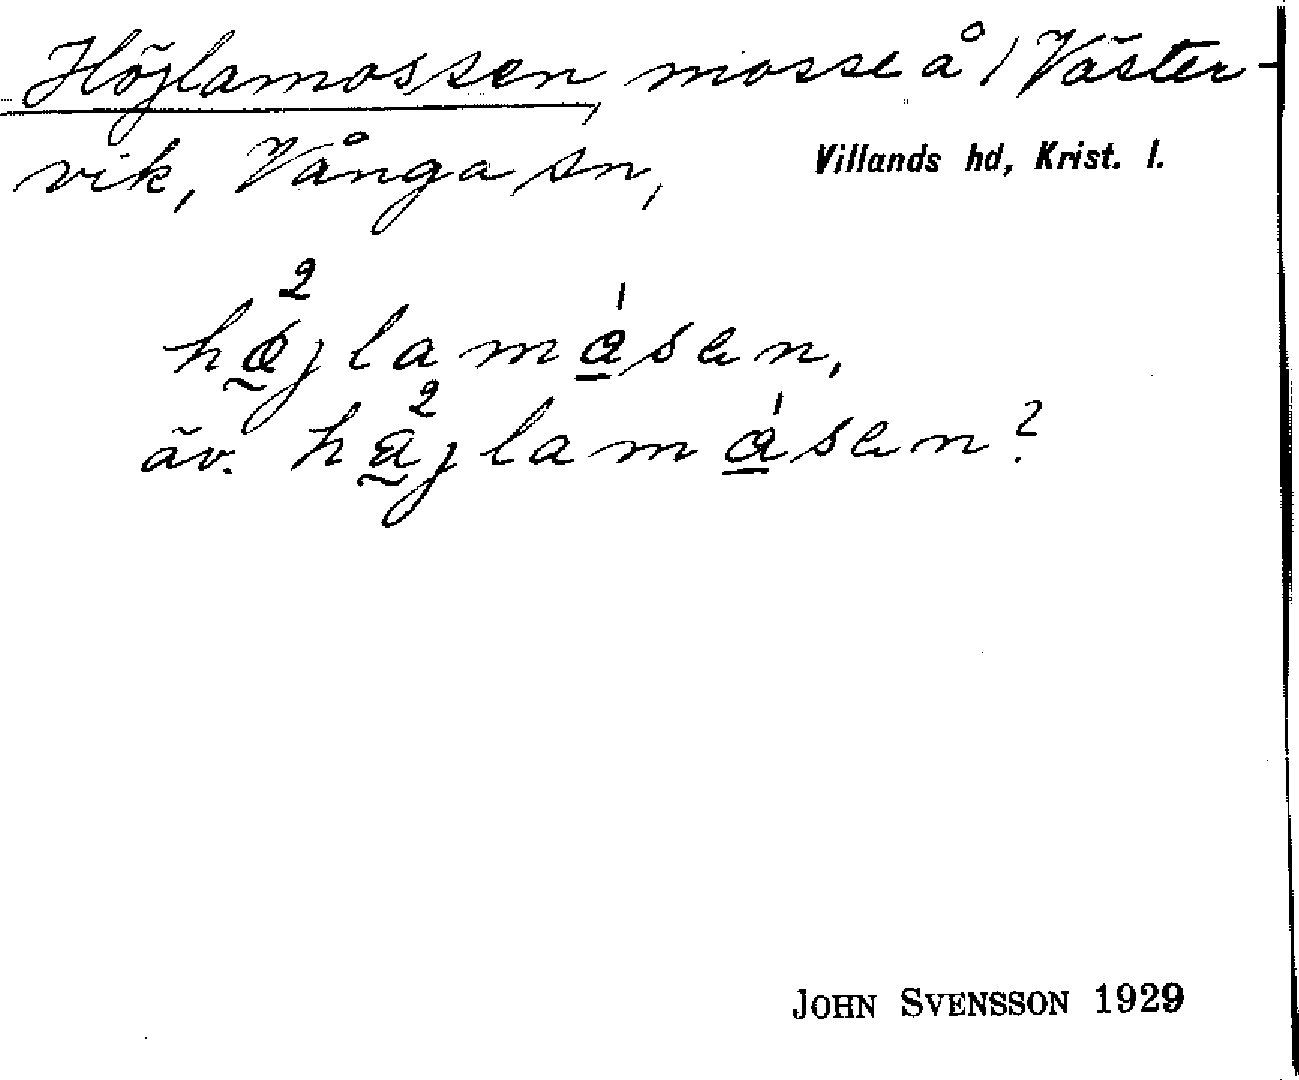 Höjlamossen, mosse å 1 Väster-
vik, Vånga sn, Villands hd, Krist. l.
hø̰²jlamå̱ˈsen,
äv. ha̰²jlamå̱ˈsen?
JOHN SVENSSON 1929